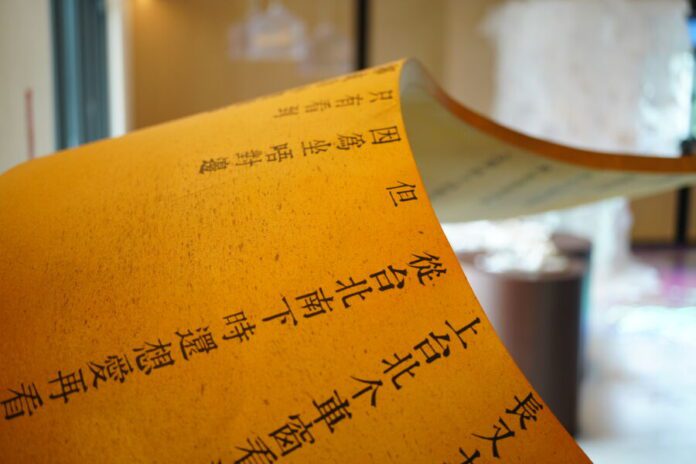 長又
上台北个車窗看
從台北南下時還想愛再看
但
因為坐唔對邊
只有看到